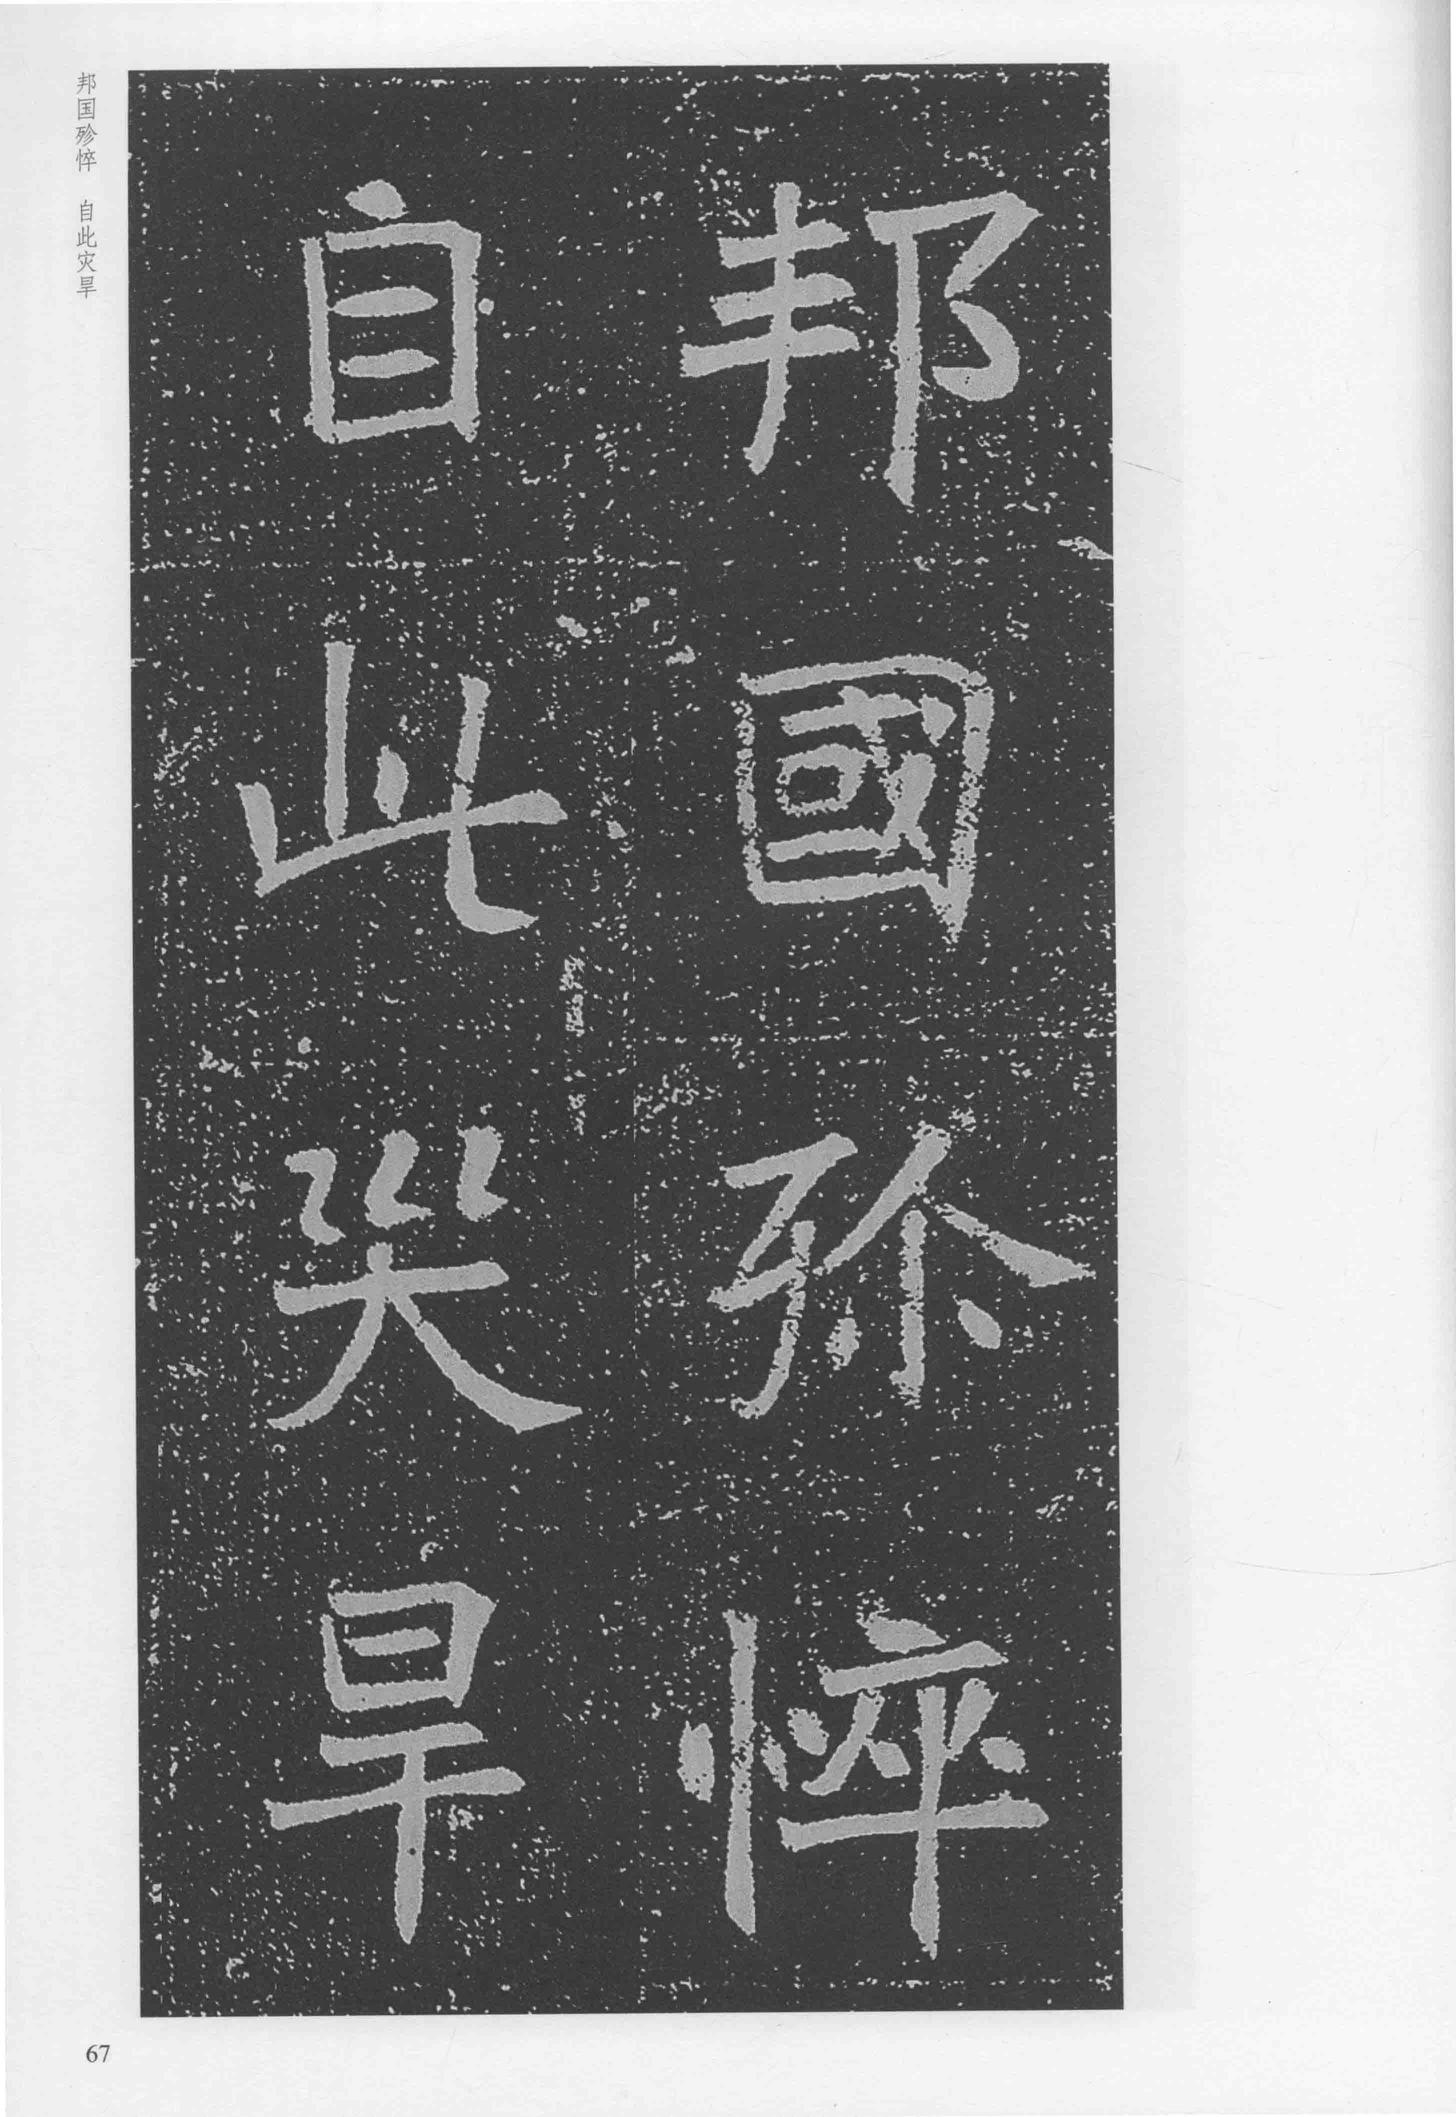 邦國殄悴
自此災旱
邦国殄悴 自此灾旱
67